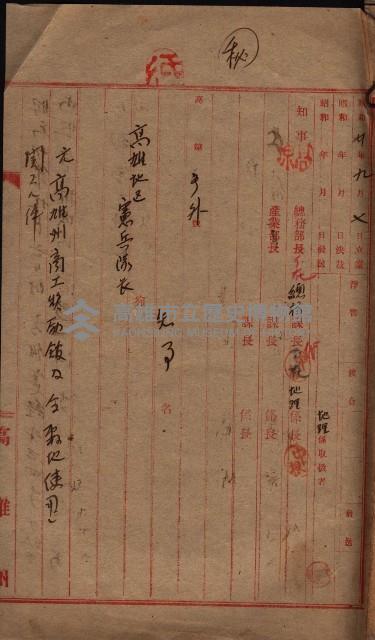 秘
昭和 廿年九月七日立案 淨書 校合 發送
昭和 年 月 日決裁
昭和 年 月 日發送 地理係取扱者
知事 總務部長 總務課長 地理係長
産業部長 課長 係長
課長 係長
高 第 号外 號
高雄地區憲兵隊長 宛 知事 名
元高雄州商工獎勵館及仝敷地使用
関スル件
高雄州
高雄市立歷史博物館
KAOHSIUNG MUSEUM OF HISTORY